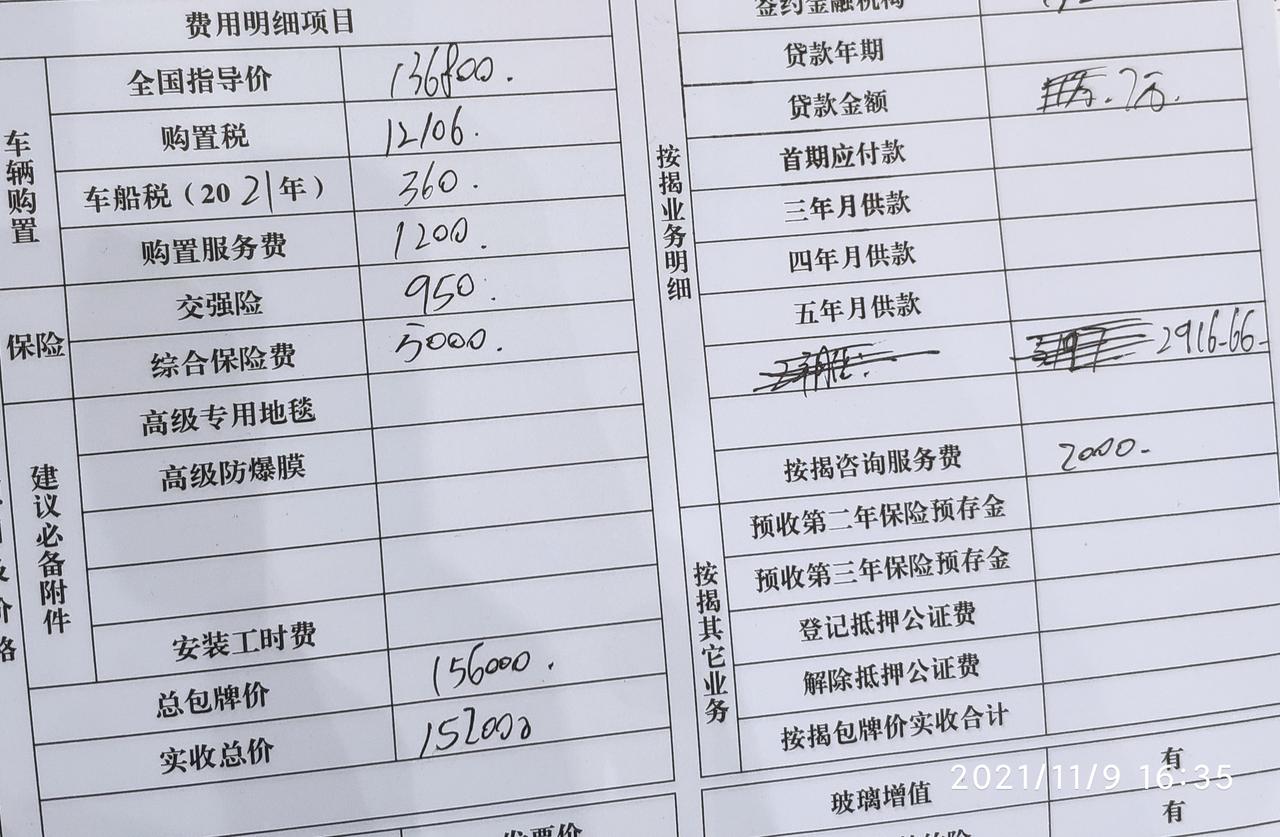 费用明细项目
车辆购置
全国指导价 136800.
购置税 12106.
车船税（2021年） 360.
购置服务费 1200.
保险
交强险 950.
综合保险费 5000.
建议必备附件
高级专用地毯
高级防爆膜
安装工时费
总包牌价 156000.
实收总价 152000
签约金融机构
按揭业务明细
贷款年期
贷款金额 7万.
首期应付款
三年月供款
四年月供款
五年月供款
2916.66-
按揭咨询服务费 2000-
按揭其它业务
预收第二年保险预存金
预收第三年保险预存金
登记抵押公证费
解除抵押公证费
按揭包牌价实收合计
玻璃增值 有
有
发票价
2021/11/9 16:35